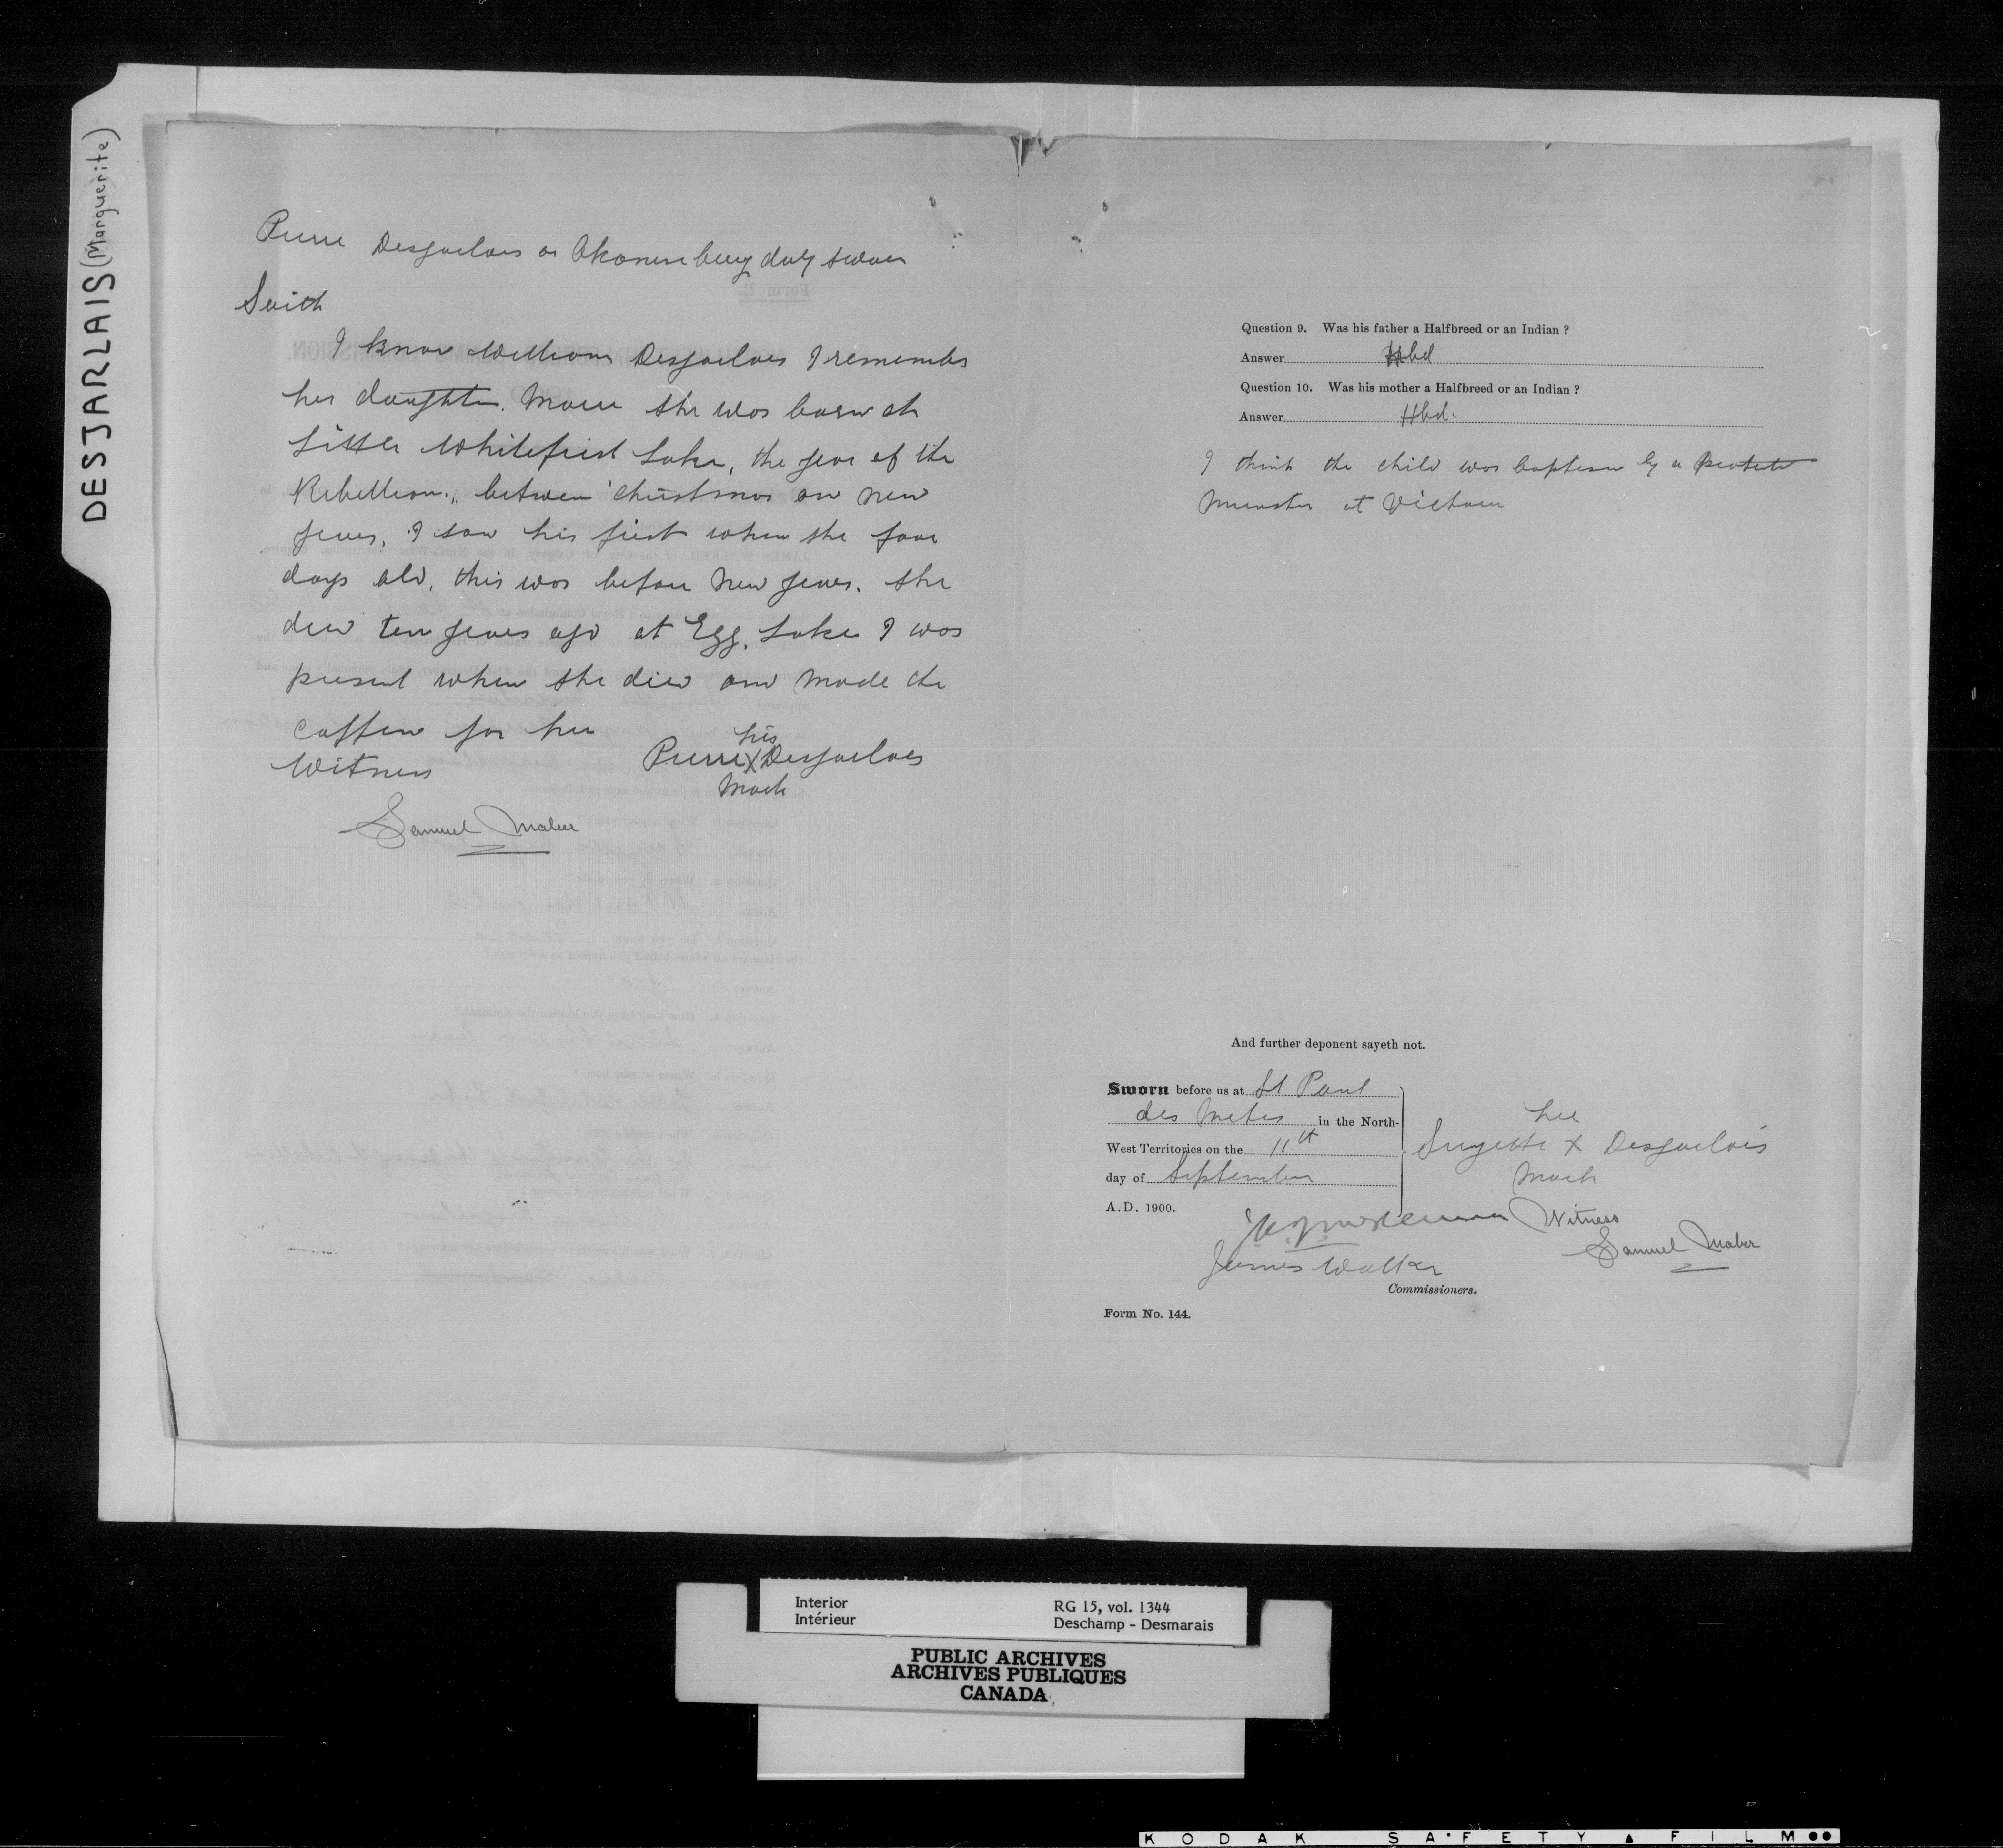 DESJARLAIS (Marguerite)
Pierre Desjarlais or Akonum being duly sworn
Saith
I know William Desjarlais I remember
her daughter. Marie she was born at
Little Whitefish Lake, the year of the
Rebellion, between Christmas an new
years, I saw his first when she four
days old, this was before New years. She
died ten years ago at Egg Lake I was
present when she died and made the
coffin for her
Witness
his
Pierre X Desjarlais
Mark
Samuel Maber
Question 9. Was his father a Halfbreed or an Indian ?
Answer Hbd
Question 10. Was his mother a Halfbreed or an Indian ?
Answer Hbd.
I think the child was baptism by a
Minister at Victoria
And further deponent sayeth not.
Sworn before us at St Paul
des Metis in the North-
West Territories on the 11th
day of September
A.D. 1900.
her
Suzette X Desjarlais
Mark
Witness
Samuel Maber
James Walker
Commissioners.
Form No. 144.
Interior
Intérieur
RG 15, vol. 1344
Deschamp - Desmarais
PUBLIC ARCHIVES
ARCHIVES PUBLIQUES
CANADA
KODAK SAFETY FILM